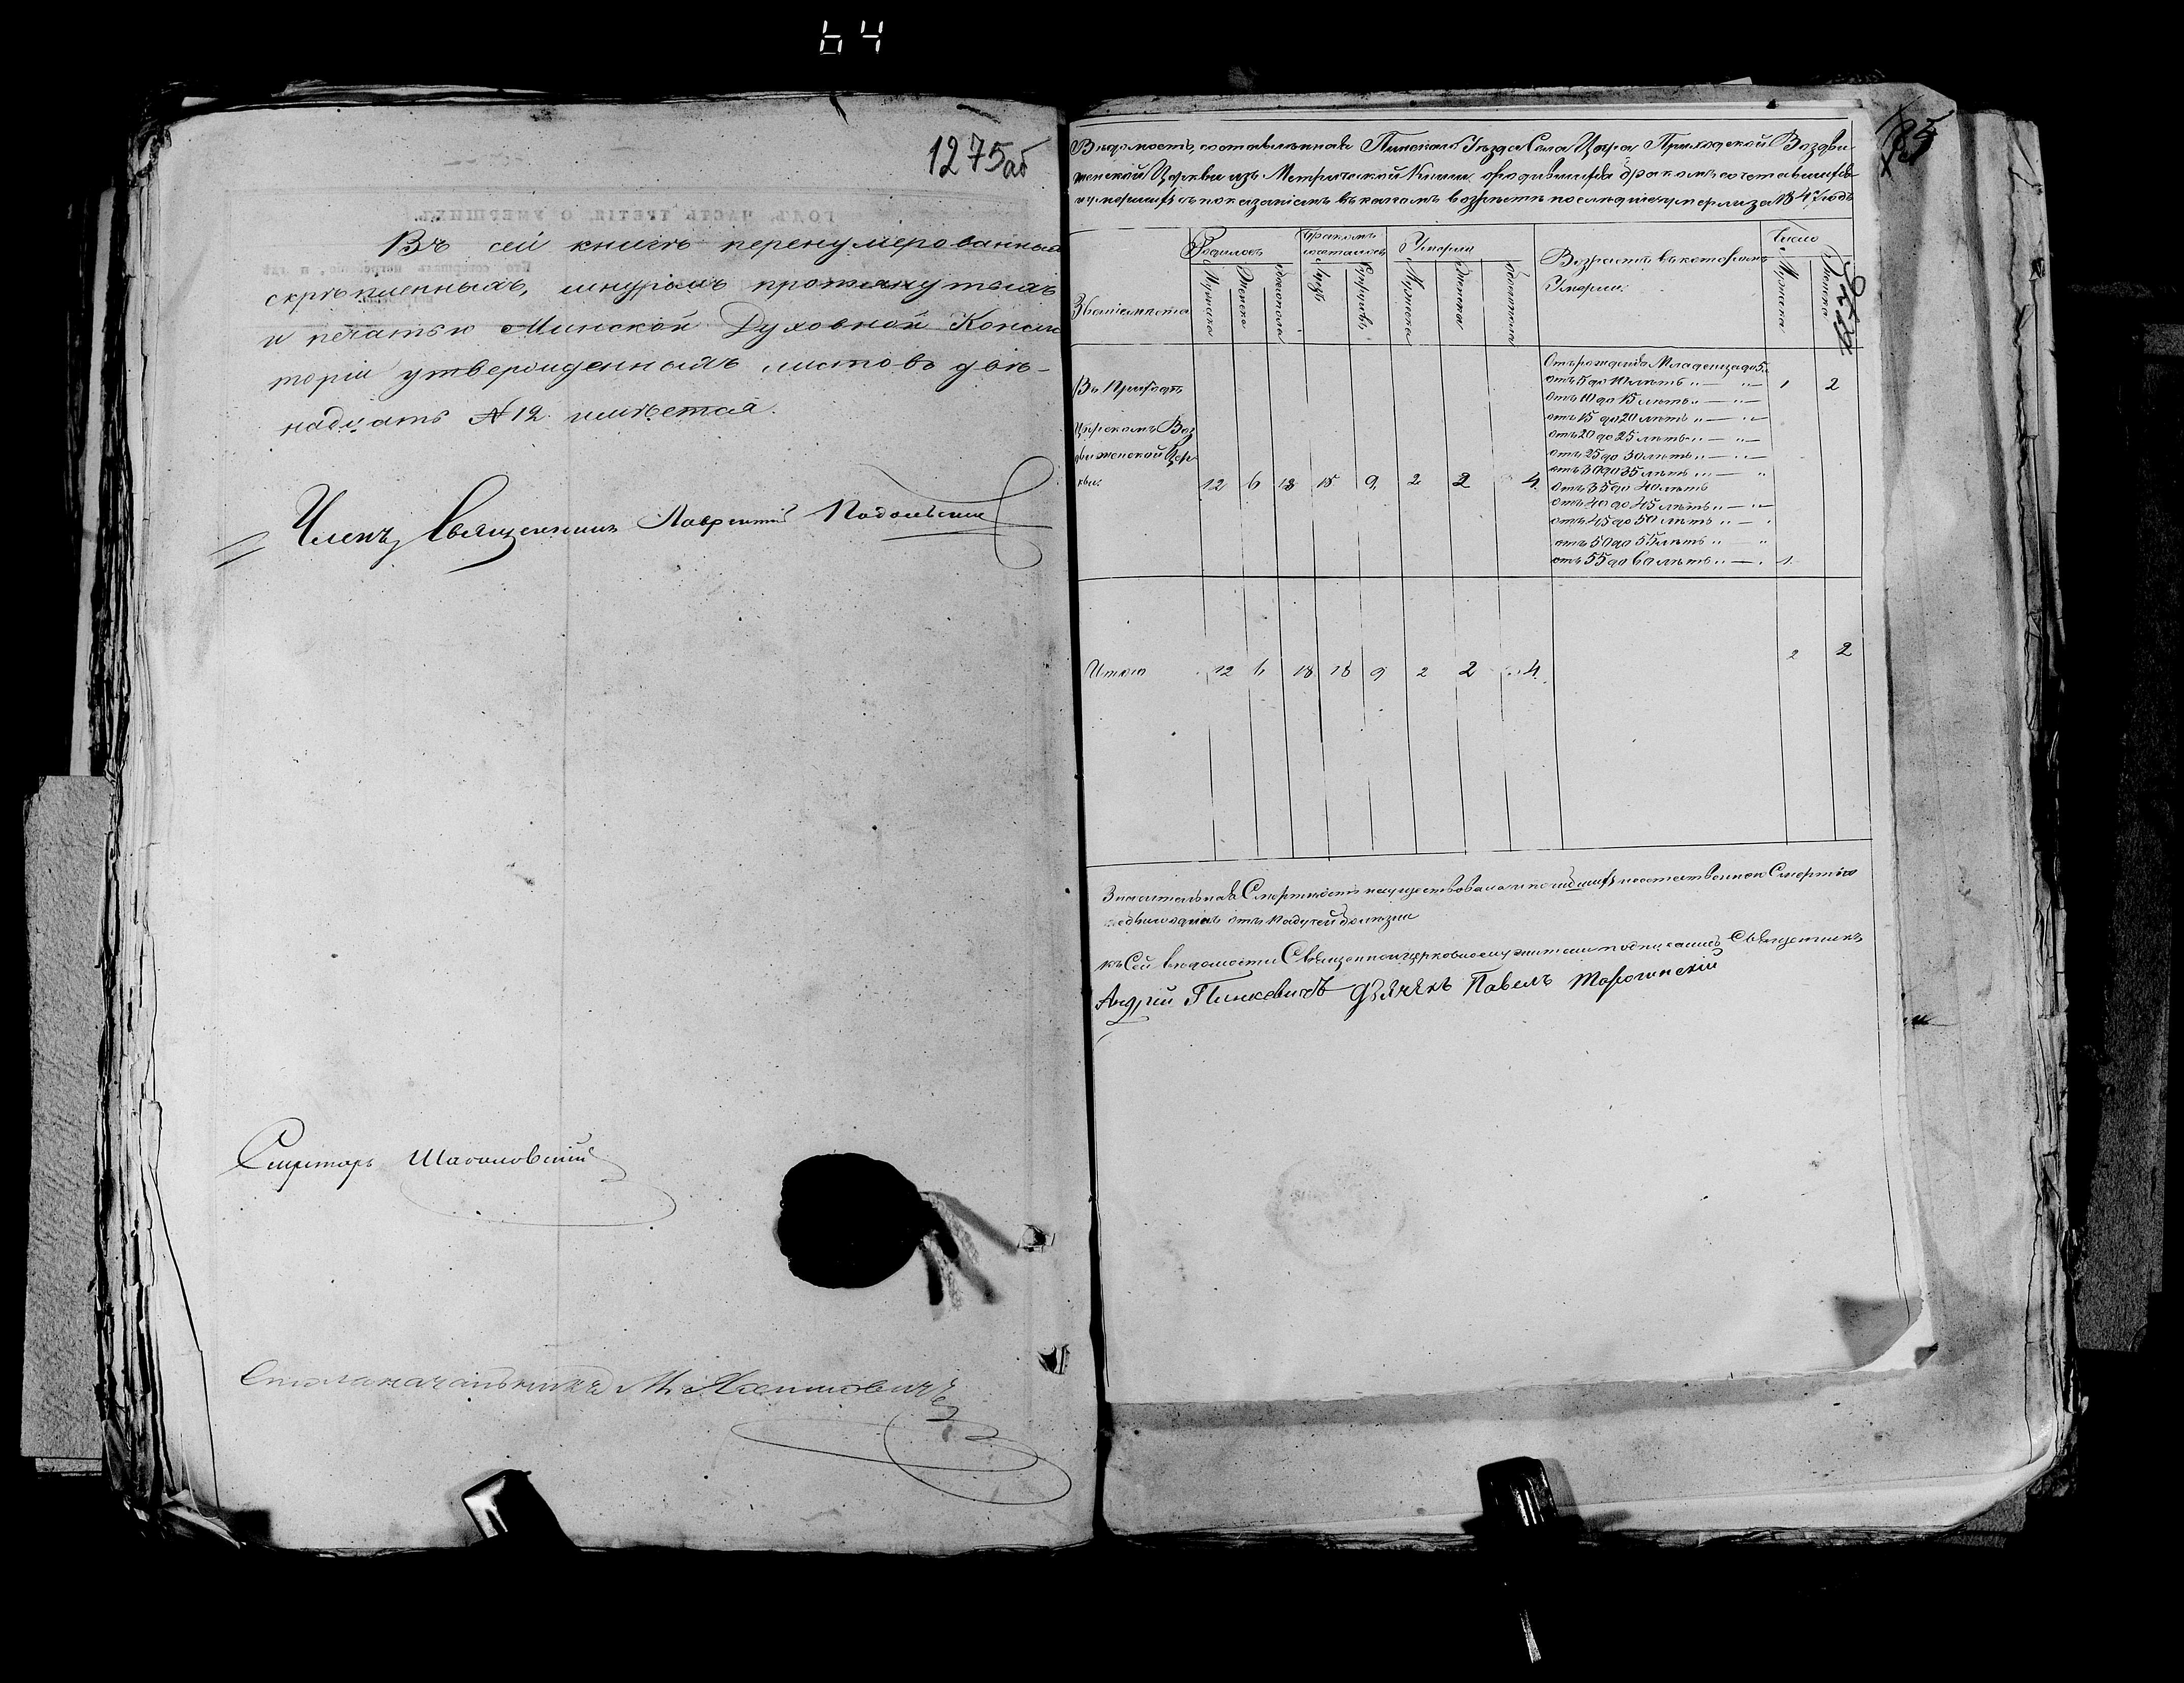 64
1275об
Въ сей книгѣ перенумерованныхъ
скрѣпленныхъ, шнуромъ протянутыхъ
и печатью Минской Духовной Консис
торіи утвержденныхъ листовъ двѣ-
надцать №12 имѣется.
Членъ Священникъ Лаврентій Подольскій
Секретарь
Столоначальникъ М.
Вѣдомость, составленная Пинскаго Уѣзда Села Цера Приходской Воздви
женской Церкви изъ Метрической Книги о родившихся бракомъ сочетавшихся
и умершихъ съ показаніемъ въ какомъ возрастѣ послѣдніе умерли за 1847 годъ
Званіе мѣста
Родилось
Мужска
Женска
обоего пола
Бракомъ
сочеталось
Умерли
Мужска
Женска
обоего пола
Возрастъ въ которомъ
Умерли.
Число
Мужска
Женска
Въ Приходѣ
Церскомъ Воз
движенской Цер
кви.
12 6 18 18 9 2 2 4
Отъ рожденія Младенца до 5.
отъ 5 до 10 лѣтъ „ — „— 1 2
отъ 10 до 15 лѣтъ „ — „—
отъ 15 до 20 лѣтъ „ — „—
отъ 20 до 25 лѣтъ „ — „—
отъ 25 до 30 лѣтъ „ — „—
отъ 30 до 35 лѣтъ „ — „
отъ 35 до 40 лѣтъ
отъ 40 до 45 лѣтъ „ — „—
отъ 45 до 50 лѣтъ „ — „
отъ 50 до 55 лѣтъ „ — „
отъ 55 до 60 лѣтъ „ — . 1
Итого 12 6 18 18 9 2 2 4 2 2
Значительная Смертность
отъ падучей болѣзни
къ Сей вѣдомости Священноцерковнослужители подписались Священникъ
Андрей Пинкевичъ Дьячекъ Павелъ